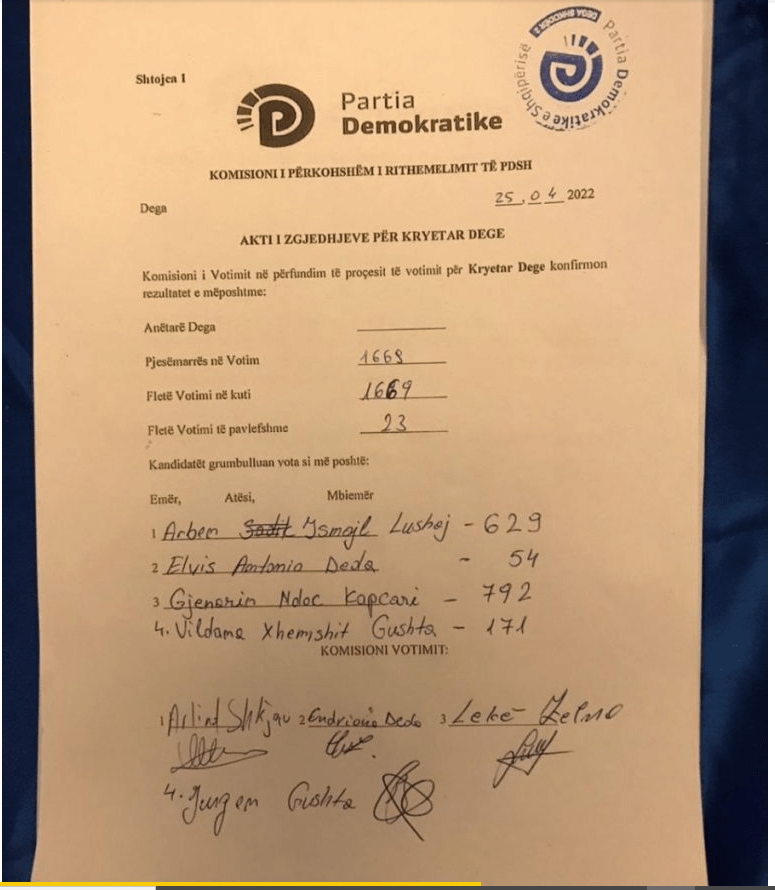 DEGA SHKODËR 2
Partia Demokratike e Shqipërisë
Shtojca 1
Partia
Demokratike
KOMISIONI I PËRKOHSHËM I RITHEMELIMIT TË PDSH
Dega
25.04 2022
AKTI I ZGJEDHJEVE PËR KRYETAR DEGE
Komisioni i Votimit në përfundim të proçesit të votimit për Kryetar Dege konfirmon
rezultatet e mëposhtme:
Anëtarë Dega
Pjesëmarrës në Votim 1669
Fletë Votimi në kuti 1669
Fletë Votimi të pavlefshme 23
Kandidatët grumbulluan vota si më poshtë:
Emër, Atësi, Mbiemër
1 Arben Sadik Ismajl Lushaj - 629
2 Elvis Antonio Deda - 54
3 Gjenarin Ndoc Kapçari - 792
4. Vildana Xhemshit Gushta - 171
KOMISIONI VOTIMIT:
1 Arlind Shkjau 2 Endriana Deda 3 Lekë Zelmo
4. Jurgen Gushta